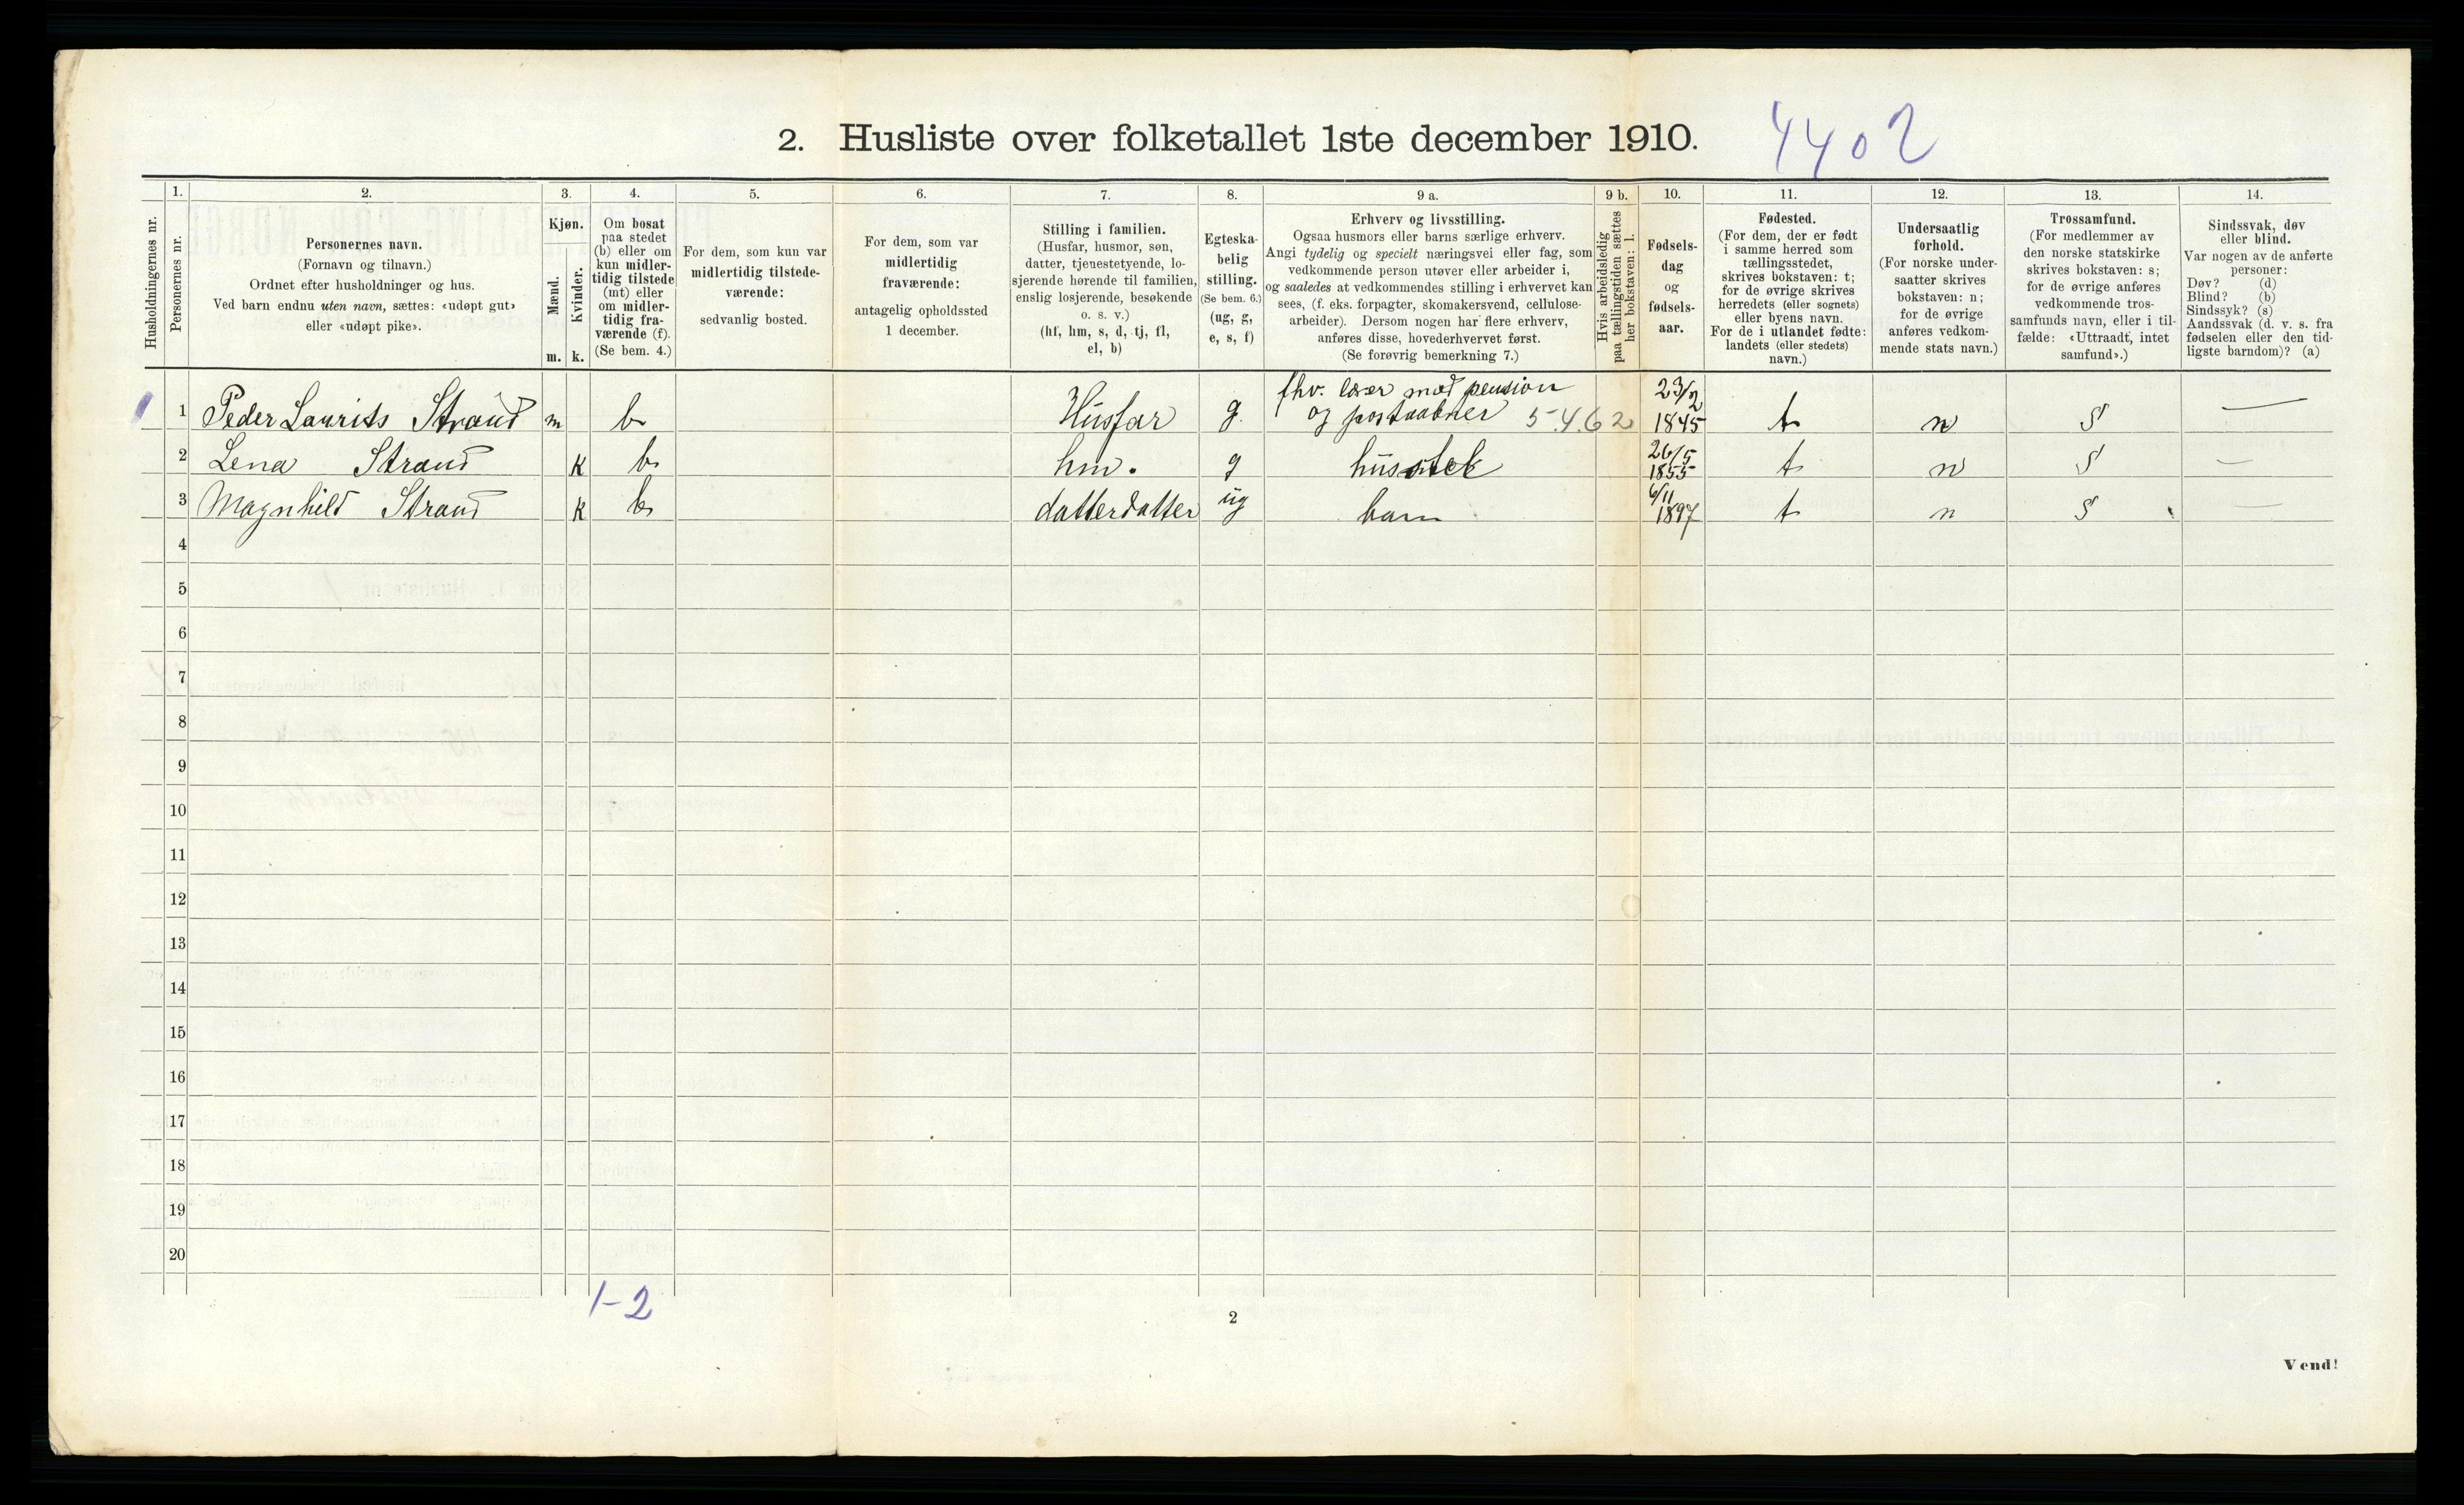 2. Husliste over folketallet 1ste december 1910.
4402
1. 2. 3. 4. 5. 6. 7. 8. 9 a. 9 b. 10. 11. 12. 13. 14.
Husholdningernes nr.
Personernes nr.
Personernes navn.
(Fornavn og tilnavn.)
Ordnet efter husholdninger og hus.
Ved barn endnu uten navn, sættes: «udøpt gut»
eller «udøpt pike».
Kjøn.
Mænd.
Kvinder.
m. k.
Om bosat
paa stedet
(b) eller om
kun midler-
tidig tilstede
(mt) eller
om midler-
tidig fra-
værende (f).
(Se bem. 4.)
For dem, som kun var
midlertidig tilstede-
værende:
sedvanlig bosted.
For dem, som var
midlertidig
fraværende:
antagelig opholdssted
1 december.
Stilling i familien.
(Husfar, husmor, søn,
datter, tjenestetyende, lo-
sjerende hørende til familien,
enslig losjerende, besøkende
o. s. v.)
(hf, hm, s, d, tj, fl,
el, b)
Egteska-
belig
stilling.
(Se bem. 6.)
(ug, g,
e, s, f)
Erhverv og livsstilling.
Ogsaa husmors eller barns særlige erhverv.
Angi tydelig og specielt næringsvei eller fag, som
vedkommende person utøver eller arbeider i,
og saaledes at vedkommendes stilling i erhvervet kan
sees, (f. eks. forpagter, skomakersvend, cellulose-
arbeider). Dersom nogen har flere erhverv,
anføres disse, hovederhvervet først.
(Se forøvrig bemerkning 7.)
Hvis arbeidsledig
paa tællingstiden sættes
her bokstaven: l.
Fødsels-
dag
og
fødsels-
aar.
Fødested.
(For dem, der er født
i samme herred som
tællingsstedet,
skrives bokstaven: t;
for de øvrige skrives
herredets (eller sognets)
eller byens navn.
For de i utlandet fødte:
landets (eller stedets)
navn.)
Undersaatlig
forhold.
(For norske under-
saatter skrives
bokstaven: n;
for de øvrige
anføres vedkom-
mende stats navn.)
Trossamfund.
(For medlemmer av
den norske statskirke
skrives bokstaven: s;
for de øvrige anføres
vedkommende tros-
samfunds navn, eller i til-
fælde: «Uttraadt, intet
samfund».)
Sindssvak, døv
eller blind.
Var nogen av de anførte
personer:
Døv? (d)
Blind? (b)
Sindssyk? (s)
Aandssvak (d. v. s. fra
fødselen eller den tid-
ligste barndom)? (a)
1 1 Peder Laurits Strand m b Husfar g. fhv. lærer med pension og postaabner 5.4.62 23/2 1845 t n S —
2 Lena Strand k b hm. g husstel 26/5 1855 t n S —
3 Magnhild Strand k b datterdatter ug barn 6/11 1897 t n S —
4
5
6
7
8
9
10
11
12
13
14
15
16
17
18
19
20
1-2
2
Vend!